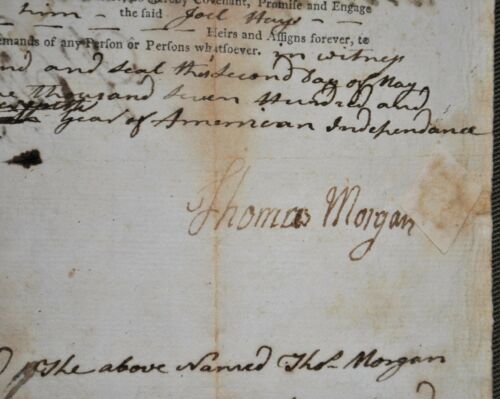 Covenant, Promise and Engage
him
the said Joel Hays
Heirs and Assigns forever, to
emands of any Person or Persons whatsoever. in witness
and seal this Second Day of May
one Thousand Seven Hundred and
Year of American Independance
Thomas Morgan
The above Named Thos. Morgan